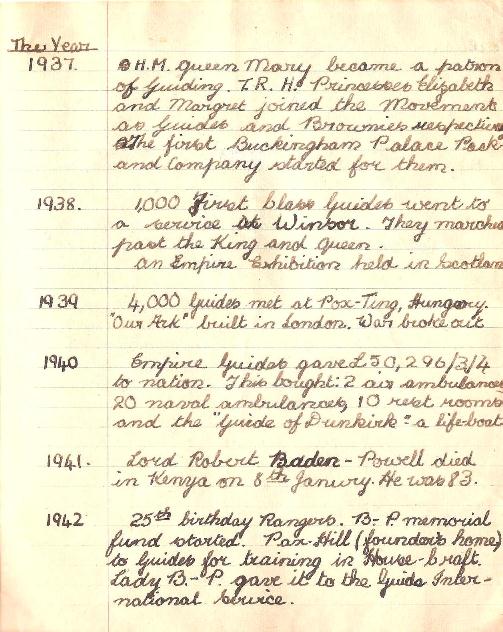 The Year
1937. H.M. Queen Mary became a patron
of Guiding. T.R.H. Princesses Elizabeth
and Margret joined the Movement
as Guides and Brownies respective
The first Buckingham Palace Pack
and Company started for them.
1938. 1,000 First Class Guides went to
a service at Winsor. They marched
past the King and Queen.
an Empire Exhibition held in Scotlan
1939 4,000 Guides met at Pax-Ting, Hungary.
"Our Ark" built in London. War broke out
1940 Empire Guides gave £50,296/3/4
to nation. This bought: 2 air ambulances
20 naval ambulances, 10 rest rooms
and the "Guide of Dunkirk" a lifeboat
1941. Lord Robert Baden-Powell died
in Kenya on 8th Janury. He was 83.
1942 25th birthday Rangers. B-P memorial
fund started. Pax-Hill (founder's home)
to Guides for training in House-Craft.
Lady B.-P. gave it to the Guide Inter-
national Service.